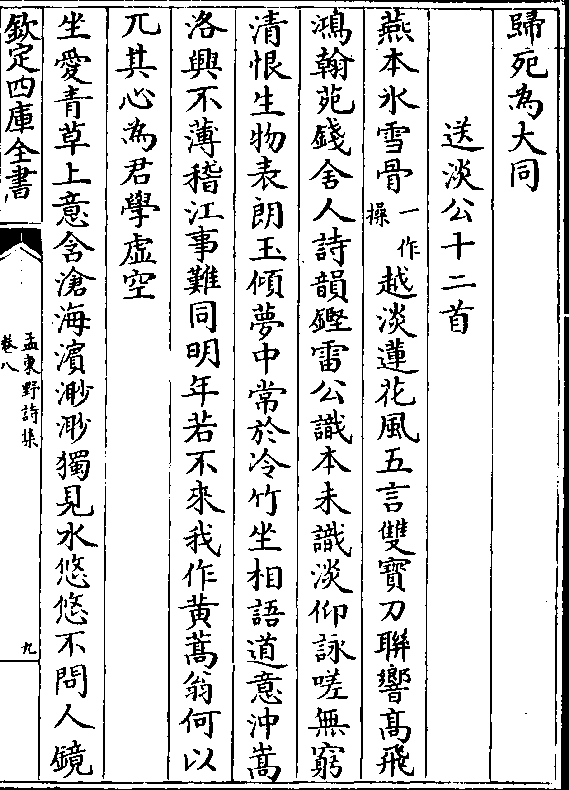 歸死為大同
送淡公十二首
燕本氷雪骨一作操越淡蓮花風五言雙寳刀聨響髙飛
鴻翰苑錢舍人詩韻鏗雷公識本未識淡仰詠嗟無窮
清恨生物表朗玉傾夢中常於冷竹坐相語道意沖嵩
洛興不薄稽江事難同明年若不來我作黄蒿翁何以
兀其心為君學虚空
坐愛青草上意含滄海濵渺渺獨見水悠悠不問人鏡
欽定四庫全書
孟東野詩集
卷八
九